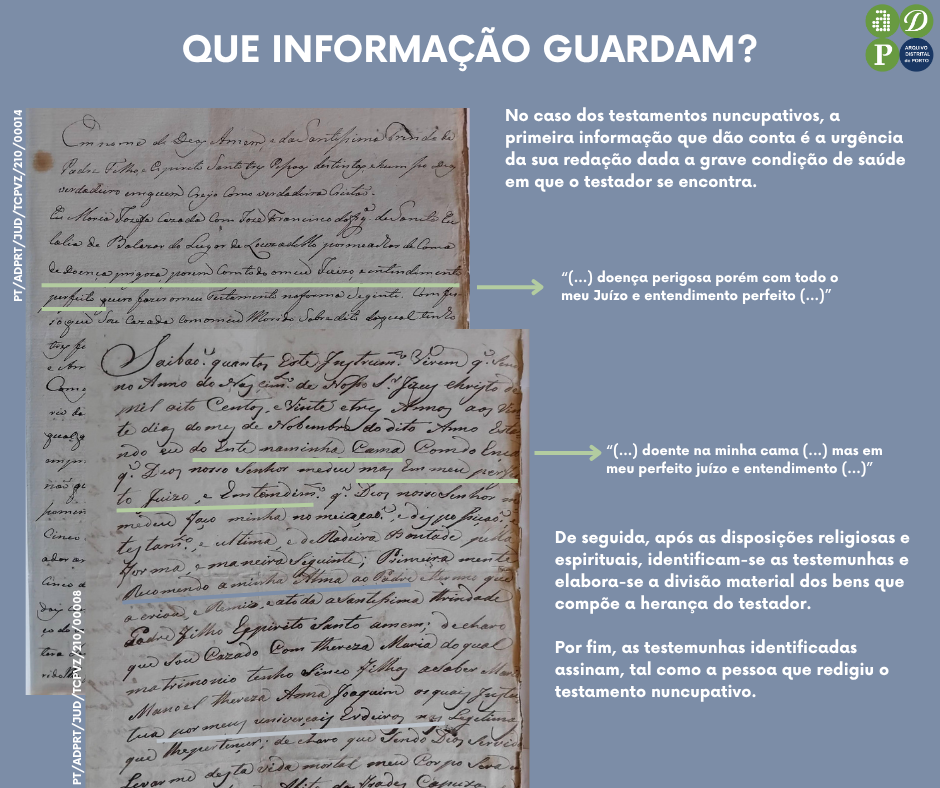 QUE INFORMAÇÃO GUARDAM?
a D
P ARQUIVO
DISTRITAL
do PORTO
PT/ADPRT/JUD/TCPVZ/210/00014
No caso dos testamentos nuncupativos, a
primeira informação que dão conta é a urgência
da sua redação dada a grave condição de saúde
em que o testador se encontra.
Em nome de Deos Amem, e da Santissima Trindade
Padre Filho, e Espirito Santo tres Pessoas destintas, e hum só Deos
verdadeiro em quem Creio Como verdadeira Cristã.
Eu Maria Jozefa Cazada Com Joze Francisco da de Santa Eu
lalia de Balazar do Lugar de Louzadello por me achar de Cama
de doença prigoza porem Com todo o meu Juizo e entendimento
perfeito quero fazer o meu Testamento na forma Seginte.
Sou Cazada com o meu Marido Sobre dito do qual tenho
“(...) doença perigosa porém com todo o
meu Juízo e entendimento perfeito (...)”
Saibaõ quantos Este Instrum.to Virem q.
no Anno do Nascim.to de Nosso S.r Jezus Christo de
mil oito Centos, e Vinte e tres Annos aos Vin
te dias do mes de Novembro do dito Anno Estan
ndo eu do Ente na minha Cama Com do Ença
q. Deos nosso Senhor me deu mas Em meu perfei
to Juizo, e Emtendim.to q. Deos nosso Senhor
me deu faço minha
testam.to, e ultima e de Radeira Bontade pella
forma, e maneira Seguinte; Primeira mente
Recomendo a minha Alma ao Padre Eterno que
a criou, e Remio, e a toda a Santissima thrindade
Padre Filho Espirito Santo amem; de charo
que Sou Cazado Com thereza Maria do qual
matrimonio tenho Sinco Filhos a Saber
Manoel thereza Anna Joaquim os quais
tua por meus univerçais Erdeiros nas Legitimas
que lhe pertençer; de charo que Sendo Deos Servido
Levar me desta vida mortal meu Corpo Sera
“(...) doente na minha cama (...) mas em
meu perfeito juízo e entendimento (...)”
PT/ADPRT/JUD/TCPVZ/210/00008
De seguida, após as disposições religiosas e
espirituais, identificam-se as testemunhas e
elabora-se a divisão material dos bens que
compõe a herança do testador.
Por fim, as testemunhas identificadas
assinam, tal como a pessoa que redigiu o
testamento nuncupativo.